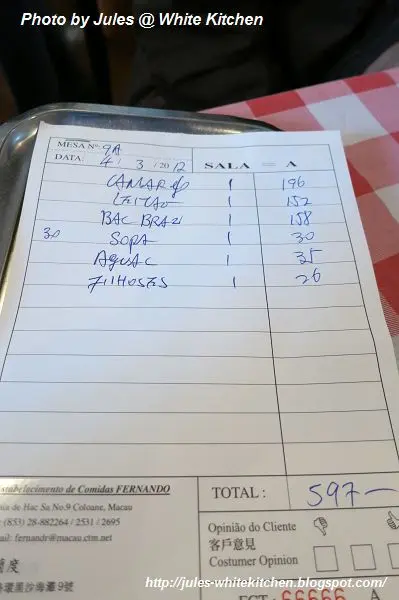 Photo by Jules @ White Kitchen
MESA Nº: 9A
DATA: 4 / 3 / 2012 SALA = A
CAMARÃO 1 196
LEITAO 1 152
BAC BRAZ 1 158
30 SOPA 1 30
AGUAC 1 35
FILHOSES 1 26
Estabelecimento de Comidas FERNANDO
de Hac Sa No.9 Coloane, Macau
(853) 28-882264 / 2531 / 2695
ail: fernandr@macau.ctm.net
環黑沙海灘9號
TOTAL: 597—
Opinião do Cliente
客戶意見
Costumer Opinion
http://jules-whitekitchen.blogspot.com/
ECT: 66666 A